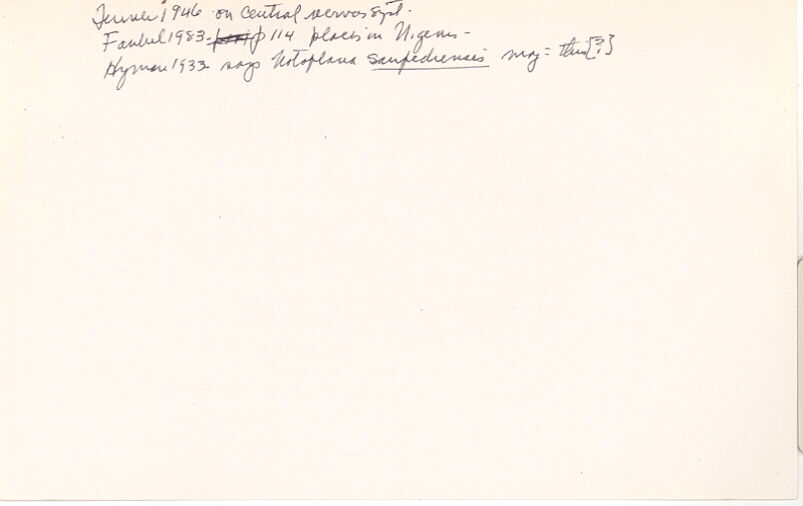 Turner 1946 on central nervous syst.
Faubel 1983 p 114 places in N. genus -
Hyman 1933 says Notoplana sanpedrensis may = this [?]